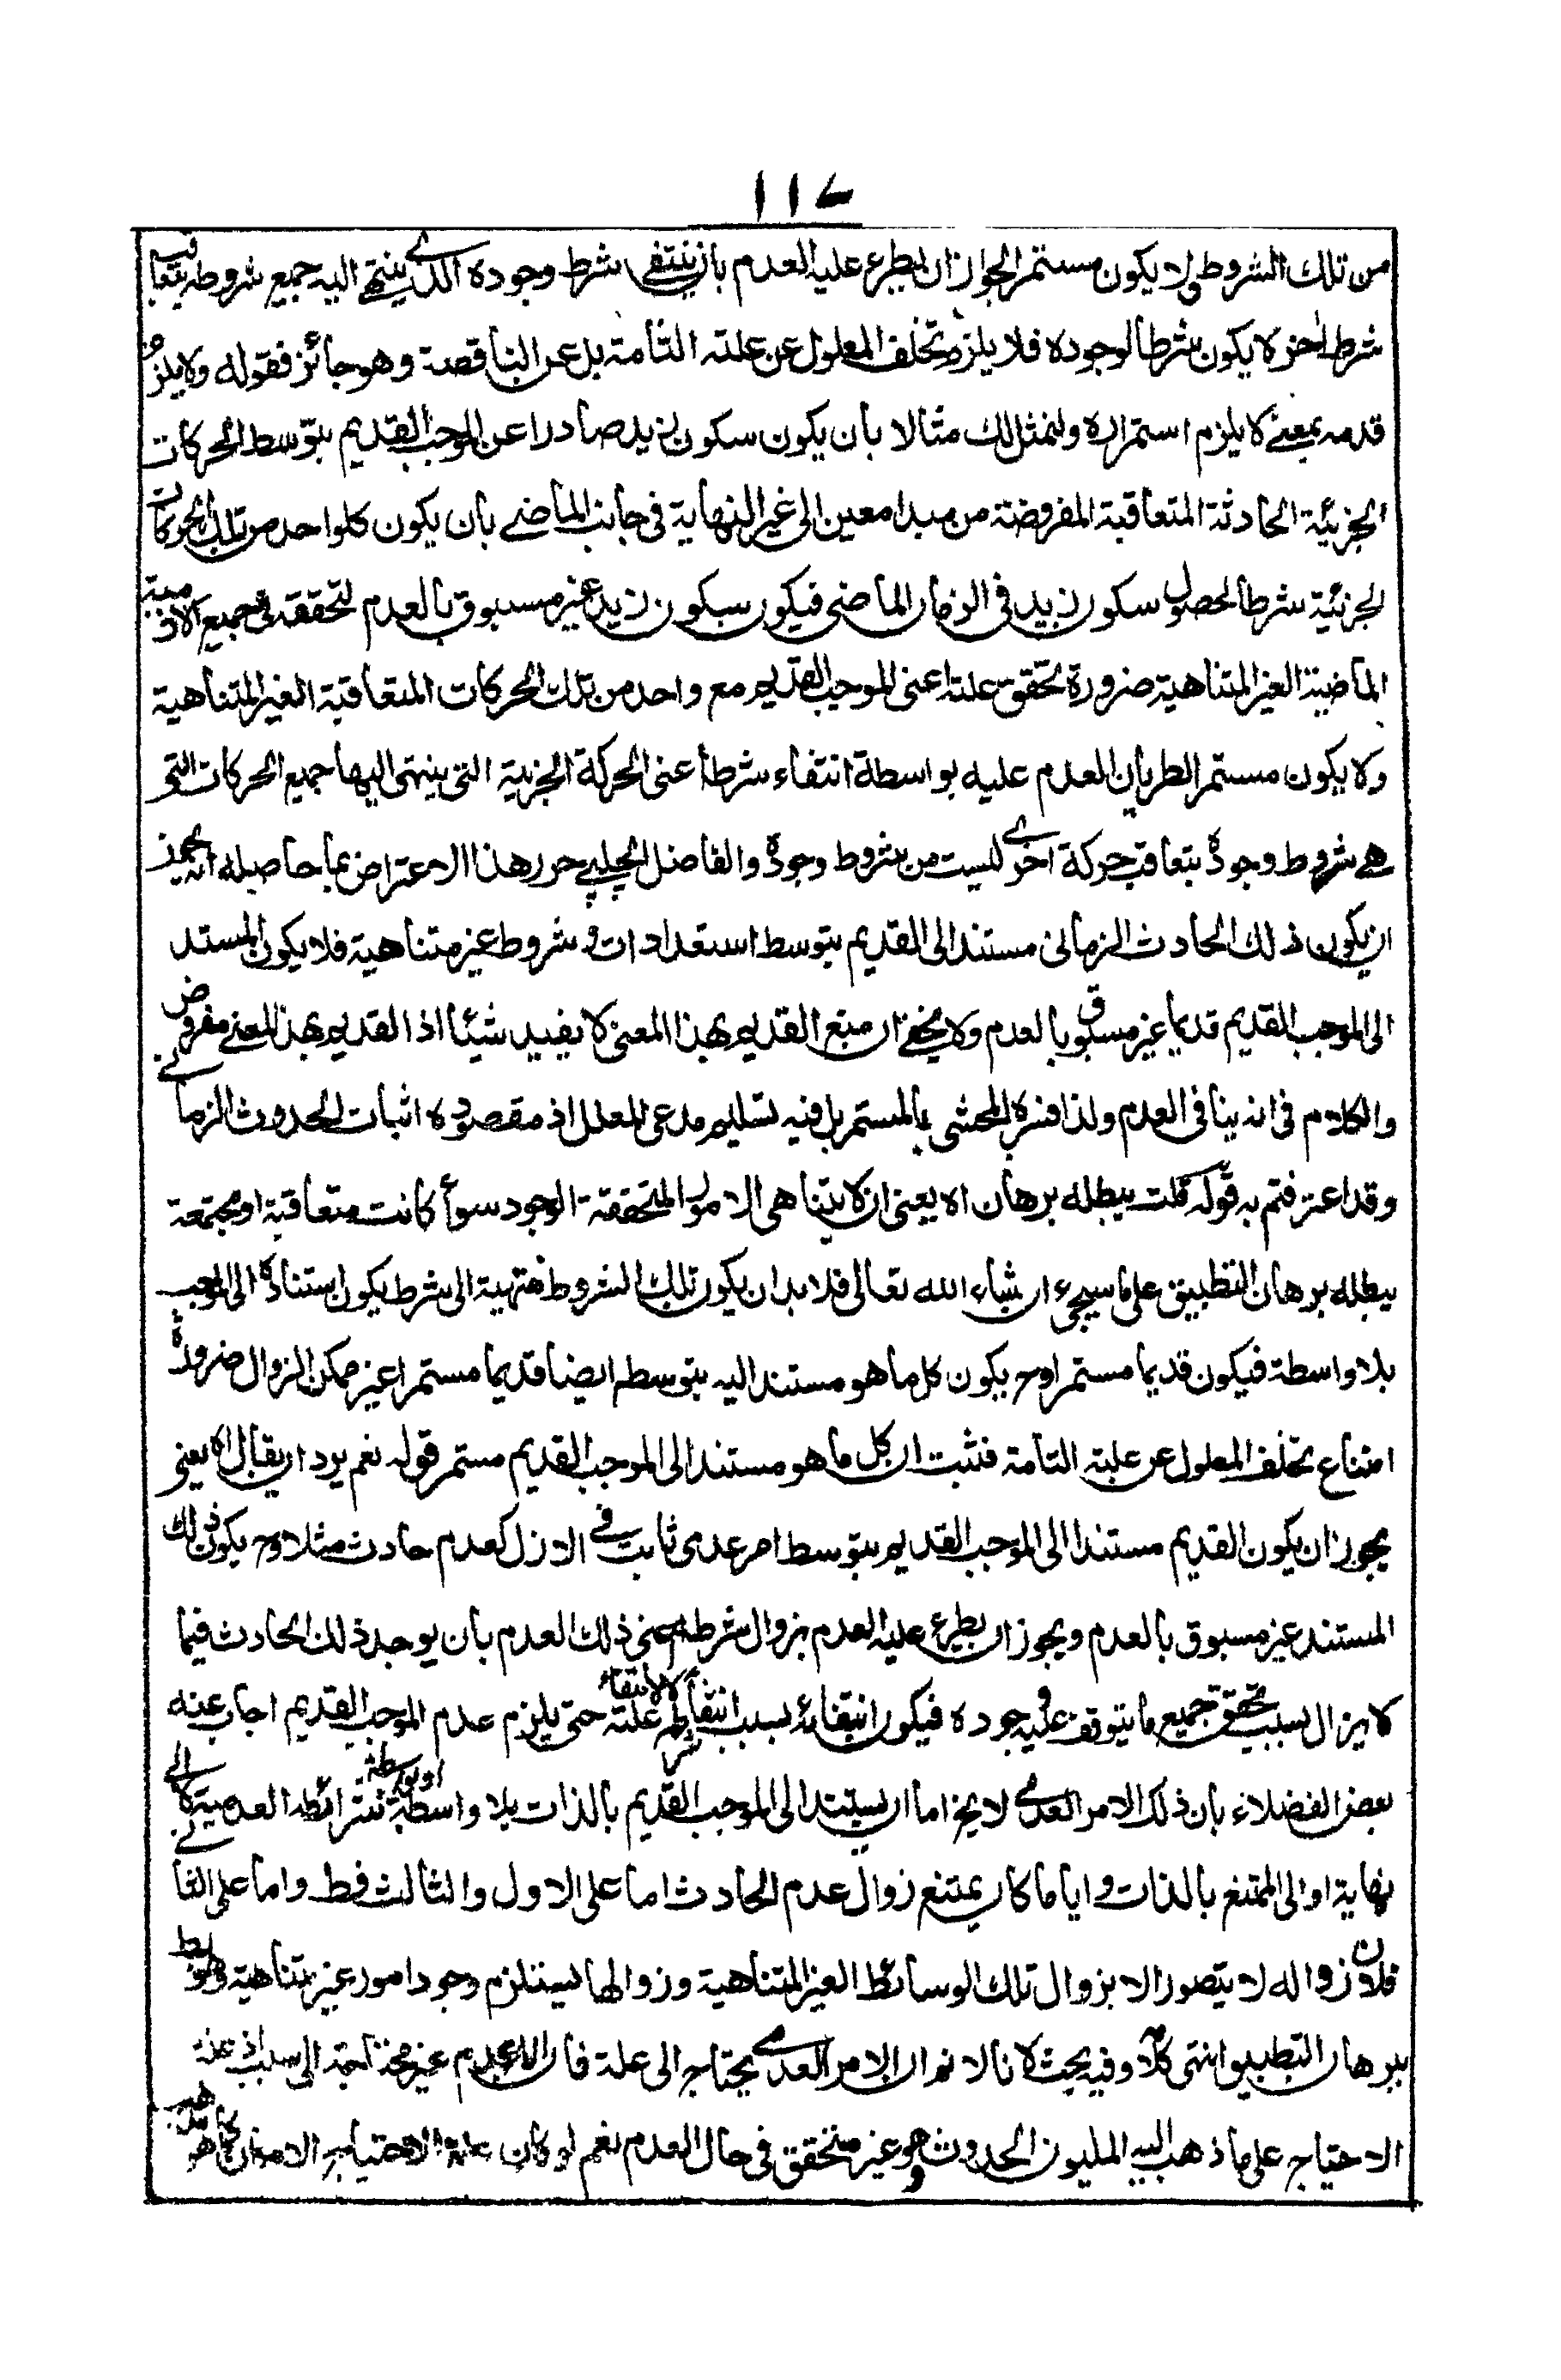 ١١٧
من تلك الشروط ولا يكون مستمرا لجواز ان يطرء عليه العدم بان ينتفى شرط وجوده الذى ينتهى اليه جميع شروطه بتعاقب
شرط اخر لا يكون شرطا لوجوده فلا يلزم تخلف المعلول عن علته التامة بل عن الناقصة وهو جائز فقوله ولا يلزم
قدمه بمعنى لا يلزم استمراره ولنمثل لك مثالا بان يكون سكون زيد صادرا عن الموجب القديم بتوسط الحركات
الجزئية الحادثة المتعاقبة المفروضة من مبدا معين الى غير النهاية فى جانب الماضى بان يكون كلواحد من تلك الحركات
الجزئية شرطا لحصول سكون زيد فى الزمان الماضى فيكون سكون زيد غير مسبوق بالعدم لتحققه فى جميع الازمنة
الماضية الغير المتناهية ضرورة تحقق علته اعنى الموجب القديم مع واحد من تلك الحركات المتعاقبة الغير المتناهية
ولا يكون مستمرا لطريان العدم عليه بواسطة انتفاء شرطه اعنى الحركة الجزئية التى ينتهى اليها جميع الحركات التى
هى شروط وجوده بتعاقب حركة اخرى ليست من شروط وجوده والفاضل الچلپى حرر هذا الاعتراض بما حاصله انه يجوز
ان يكون ذلك الحادث الزمانى مستندا الى القديم بتوسط استعدادات وشروط غير متناهية فلا يكون المستند
الى الموجب القديم قديما غير مسبوق بالعدم ولا يخفى ان منع القديم بهذا المعنى لا يفيد شيئا اذ القديم بهذا المعنى مفروض
والكلام فى انه ينافى العدم ولذا فسره المحشى بالمستمر بل فيه تسليم مدعى المعلل اذ مقصوده اثبات الحدوث الزمانى
وقد اعترفتم به قوله قلت يبطله برهان اه يعنى ان لا يتناهى الامور المتحققة الوجود سوأ كانت متعاقبة او مجتمعة
يبطله برهان التطبيق على ما سيجىء ان شاء الله تعالى فلابد ان يكون تلك الشروط منتهية الى شرط يكون استناده الى الموجب
بلا واسطة فيكون قديما مستمرا وح يكون كل ما هو مستند اليه بتوسطه ايضا قديما مستمرا غير ممكن الزوال ضرورة
امتناع تخلف المعلول عن علته التامة فثبت ان كل ما هو مستند الى الموجب القديم مستمر قوله نعم يرد ان يقال اه يعنى
يجوز ان يكون القديم مستندا الى الموجب القديم بتوسط امر عدمى ثابت فى الازل كعدم حادث مثلا وح يكون ذلك
المستند غير مسبوق بالعدم ويجوز ان يطرء عليه العدم بزوال شرطه اعنى ذلك العدم بان يوجد ذلك الحادث فيما
لا يزال بسبب تحقق جميع ما يتوقف عليه وجوده فيكون انتفاءه بسبب انتفاء شرطه لا لانتفاء علته حتى يلزم عدم الموجب القديم اجاب عنه
بعض الفضلاء بان ذلك الامر العدمى لا يخ اما ان يستند الى الموجب القديم بالذات بلا واسطة او بواسطة شرائطه العدمية لا الى
نهاية او الى الممتنع بالذات و اياما كان يمتنع زوال عدم الحادث اما على الاول والثالث فظ واما على الثانى
فلان زواله لا يتصور الا بزوال تلك الوسائط الغير المتناهية وزوالها يستلزم وجود امور غير متناهية وهو بط
ببرهان التطبيق انتهى كلامه وفيه بحث لانا لا نم ان الامر العدمى يحتاج الى علة فان العدم غير محتاج الى سبب اذ علة
الاحتياج على ما ذهب اليه المليون الحدوث وهو غير متحقق فى حال العدم نعم لو كان علة الاحتياج الامكان كما هو